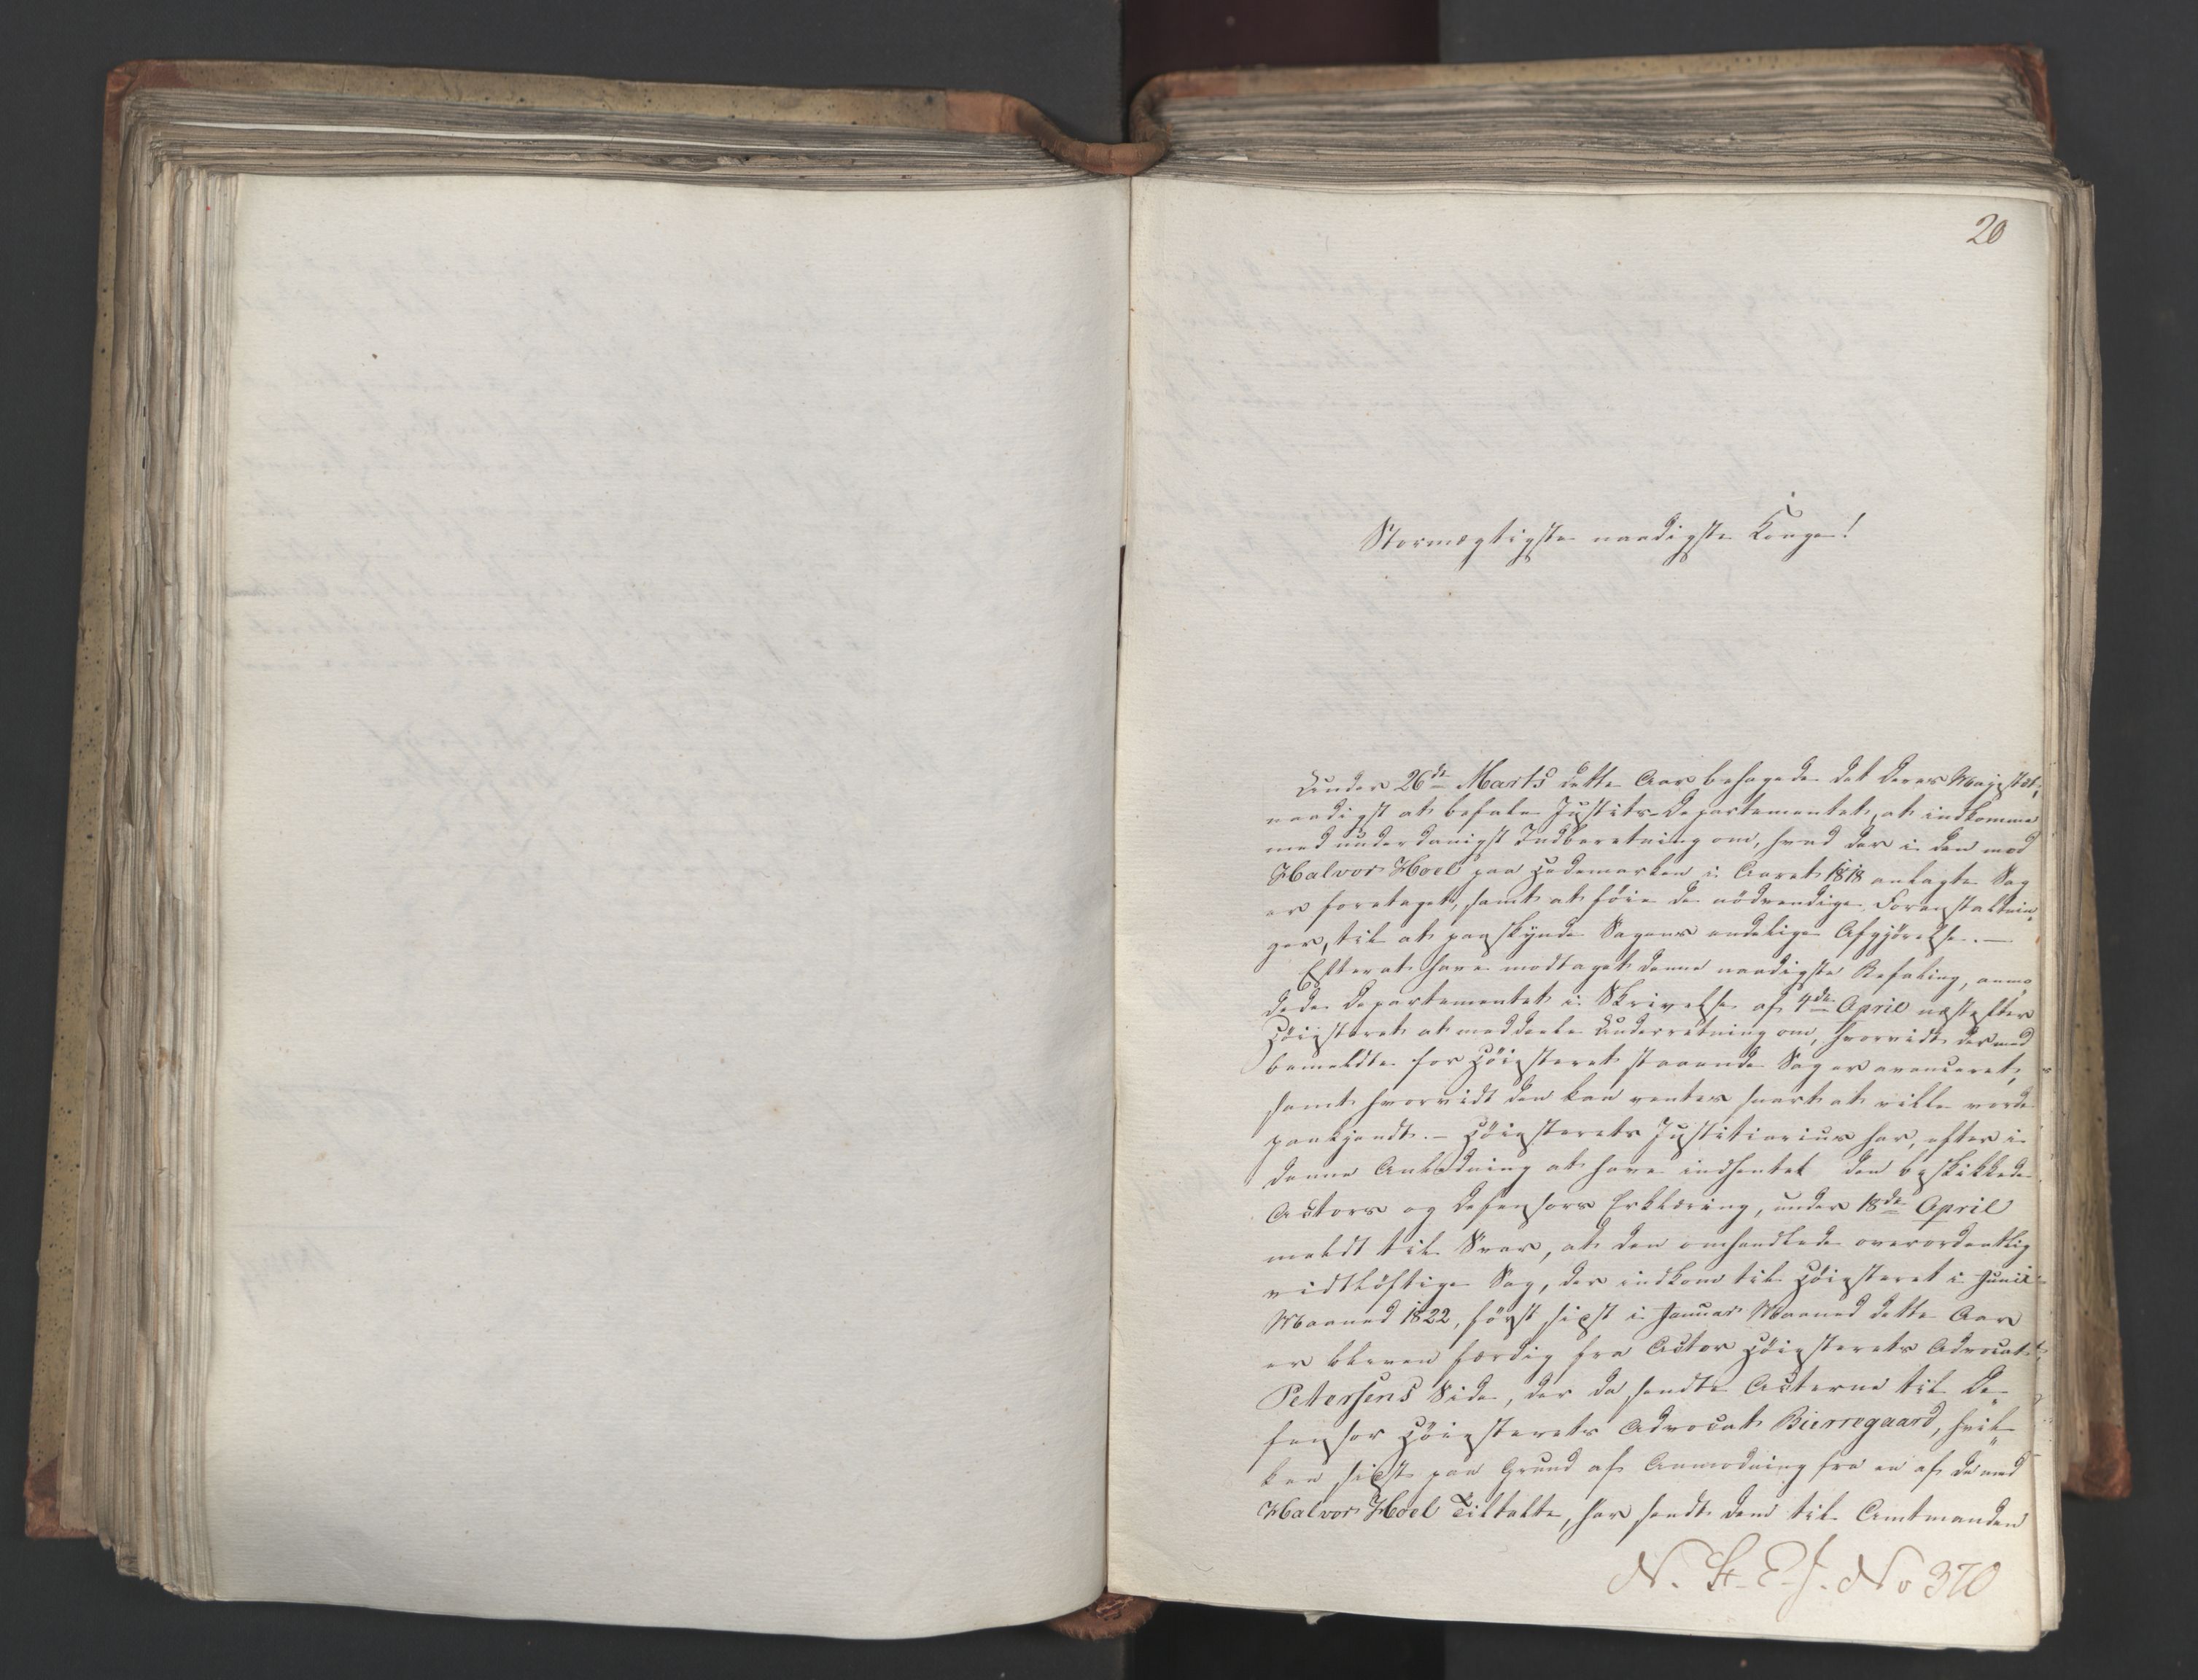 20
Stormægtigste naadigste Konge!
Under 26de Marts dette Aar behagede det Deres Majestæt,
naadigst at befale Justits-Departementet, at indkomme
med underdanigst Indberetning om, hvad der i den mod
Halvor Hoel paa Hedemarken i Aaret 1818 anlagte Sag
er foretaget, samt at föie de nödvendige Foranstaltnin„
ger, til at paaskynde Sagens endelige Afgjörelse. —
Efterat have modtaget denne naadigste Befaling, anmo„
dede Departementet i Skrivelse af 4de April næstefter
Höiesteret at meddeele Underretning om, hvorvidt der med
bemeldte for Höiesteret staaende Sag er avanceret,
samt hvorvidt den kan ventes snart at ville vorde
paakjendt. — Höiesterets Justitiarius har, efter i
denne Anledning at have indhentet den beskikkede
Actors og Defensors Erklæring, under 18de April
meldt til Svar, at den omhandlede overordentlig
vidtlöftige Sag, der indkom til Höiesteret i Junii
Maaned 1822, först sidst i Januar Maaned dette Aar
er bleven færdig fra Actor Höiesterets Advocat
Petersens Side, der da sendte Acterne til De„
fensor Höiesterets Advocat Bierregaard, hvil„
ken sidste paa Grund af Anmodning fra en af de med
Halvor Hoel Tiltalte, har sendt dem til Amtmanden
N. St. E. J. No 370